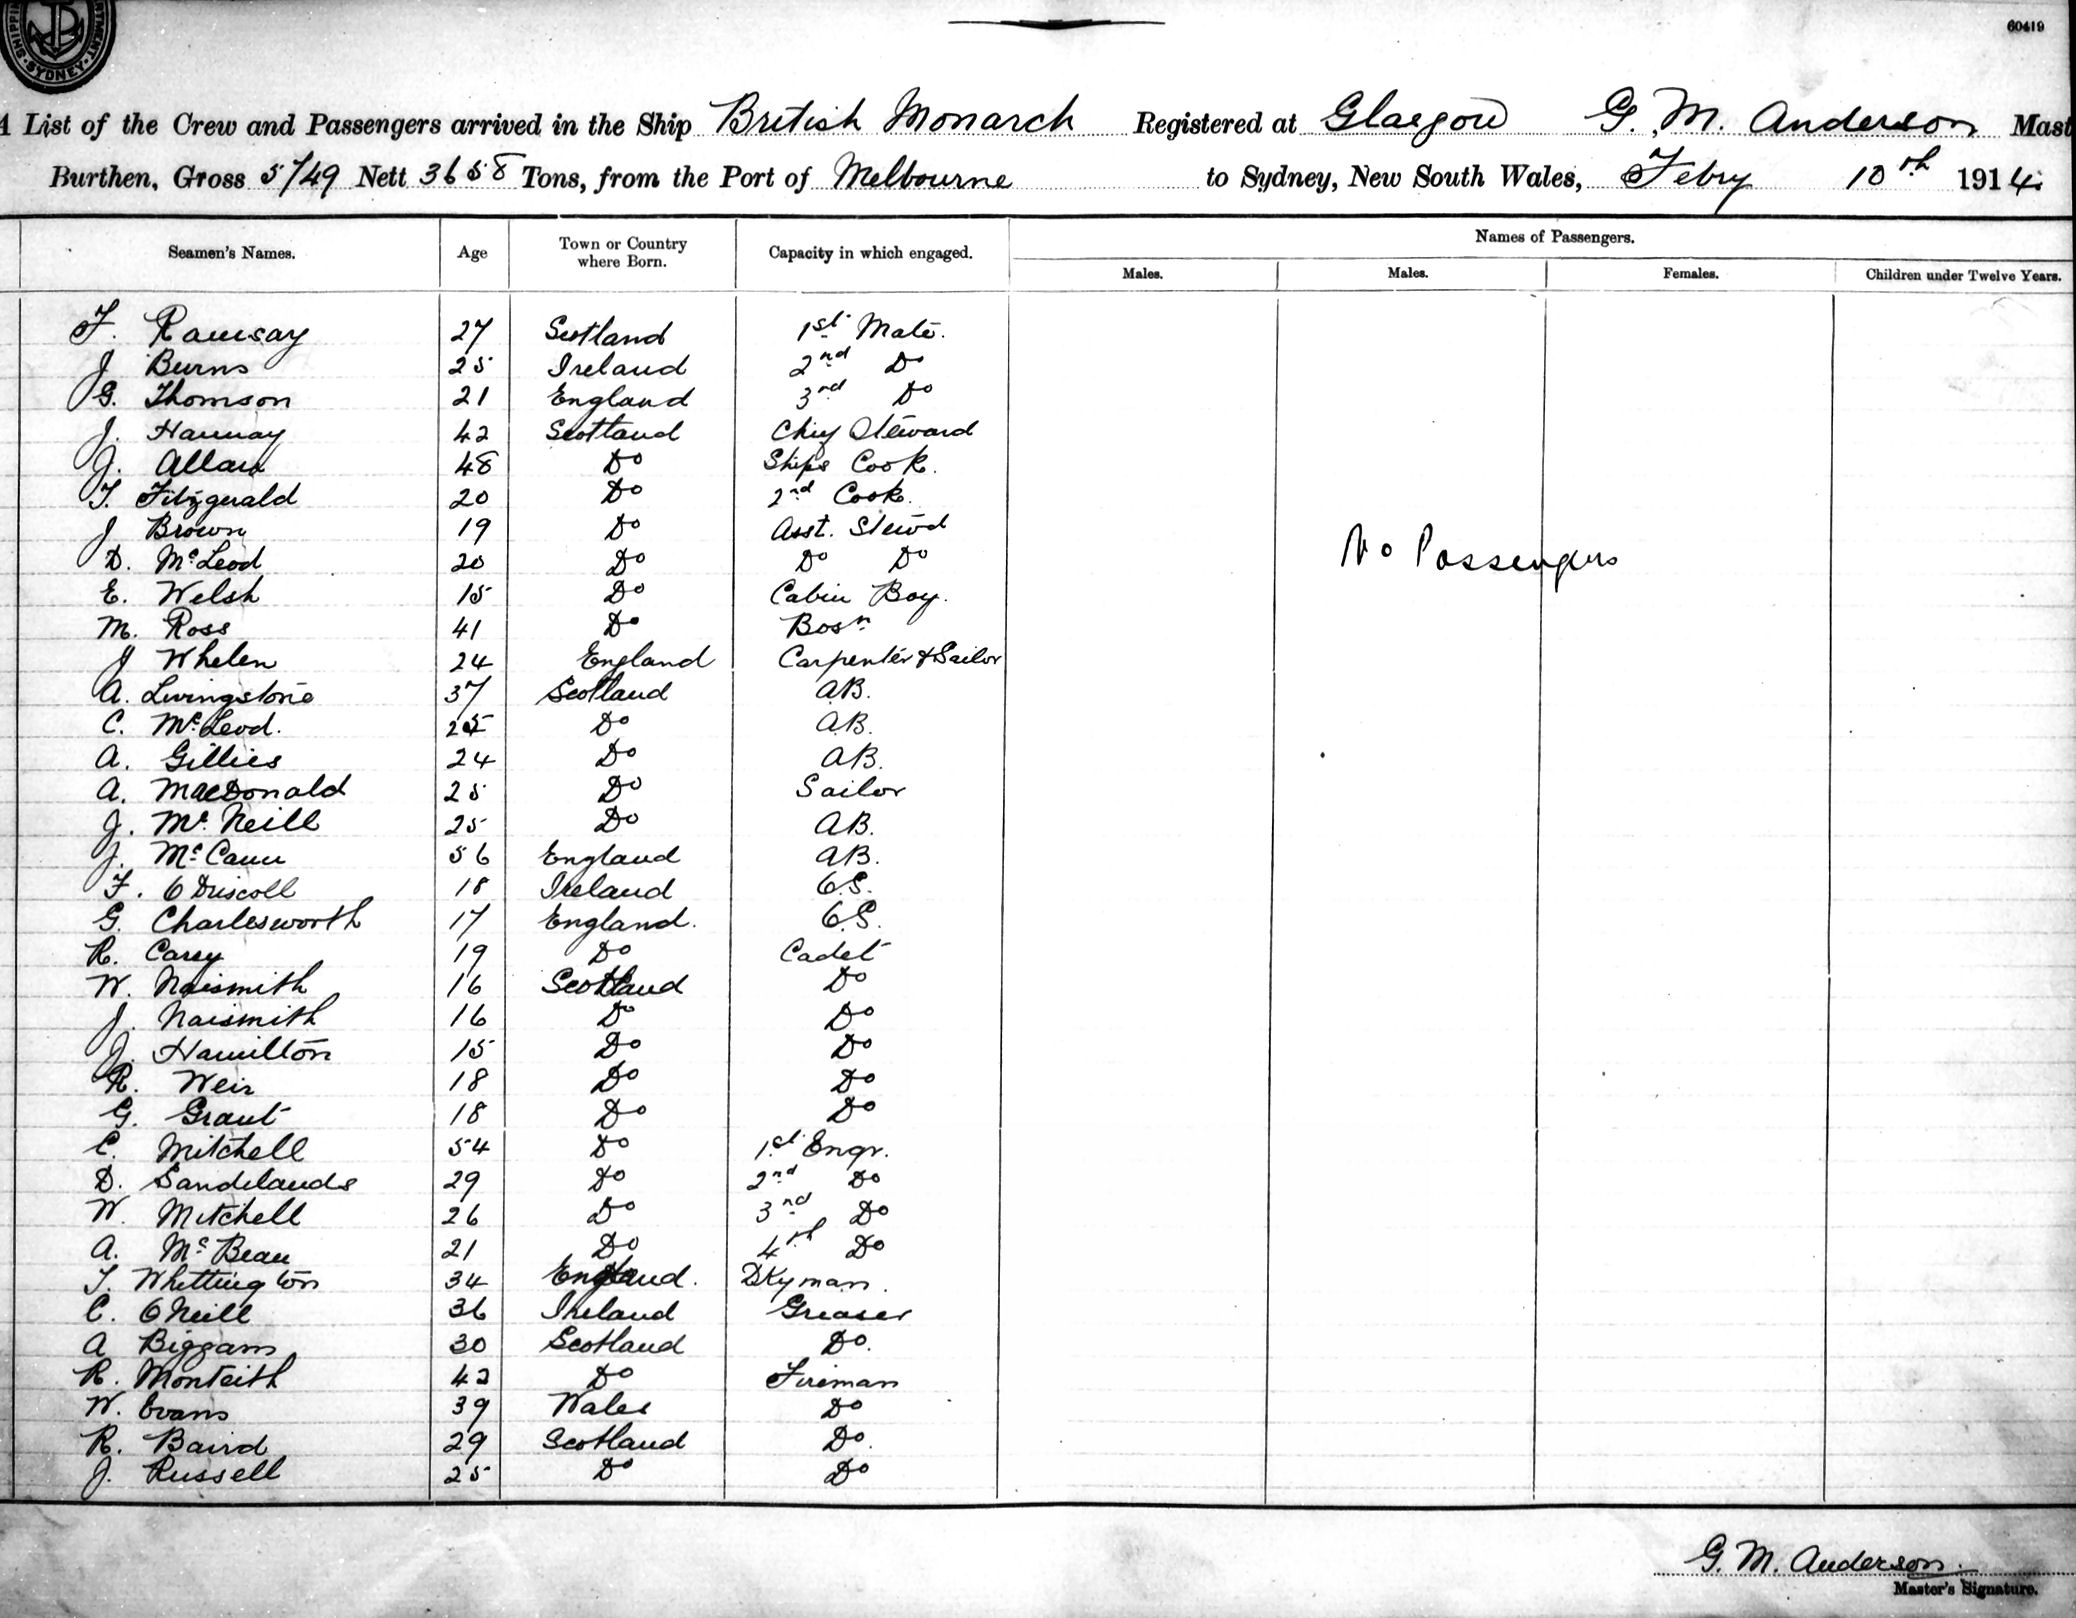 SHIPPING DEPARTMENT SYDNEY
60419
A List of the Crew and Passengers arrived in the Ship British Monarch Registered at Glasgow G. M. Anderson Mast
Burthen, Gross 5749 Nett 3658 Tons, from the Port of Melbourne to Sydney, New South Wales, Febry 10th 1914
Seamen's Names. Age Town or Country where Born. Capacity in which engaged. Names of Passengers.
Males. Males. Females. Children under Twelve Years.
F. Ramsay 27 Scotland 1st Mate.
J Burns 25 Ireland 2nd Do
G. Thomson 21 England 3rd Do
J. Hannay 42 Scotland Chief Steward
J. Allan 48 Do Ships Cook.
T. Fitzgerald 20 Do 2nd Cook.
J Brown 19 Do Asst. Stewd
D. McLeod 20 Do Do Do
No Passengers
E. Welsh 15 Do Cabin Boy.
M. Ross 41 Do Bosn
J Whelen 24 England Carpenter & Sailor
A. Livingstone 37 Scotland A.B.
C. McLeod. 25 Do A.B.
A. Gillies 24 Do A.B.
A. MacDonald 25 Do Sailor
J. McNeill 25 Do A.B.
J. McCann 56 England A.B.
F. O Driscoll 18 Ireland O.S.
G. Charlesworth 17 England. O.S.
R. Carey 19 Do Cadet
W. Naismith 16 Scotland Do
J. Naismith 16 Do Do
J. Hamilton 15 Do Do
R. Weir 18 Do Do
G. Grant 18 Do Do
C. Mitchell 54 Do 1st Engr.
D. Sandilands 29 Do 2nd Do
W. Mitchell 26 Do 3rd Do
A. McBean 21 Do 4th Do
T. Whittington 34 England. Dkyman
C. O Neill 36 Ireland Greaser
A Biggam 30 Scotland Do.
R. Monteith 42 Do Fireman
W. Evans 39 Wales Do
R. Baird 29 Scotland Do.
J. Russell 25 Do Do
G. M. Anderson.
Master's Signature.